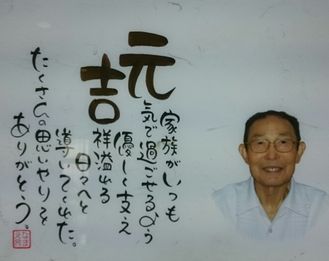 家族がいつも
元気で過ごせるよう
優しく支え
吉祥溢れる
日々へと
導いてくれた。
たくさんの思いやりを
ありがとう。